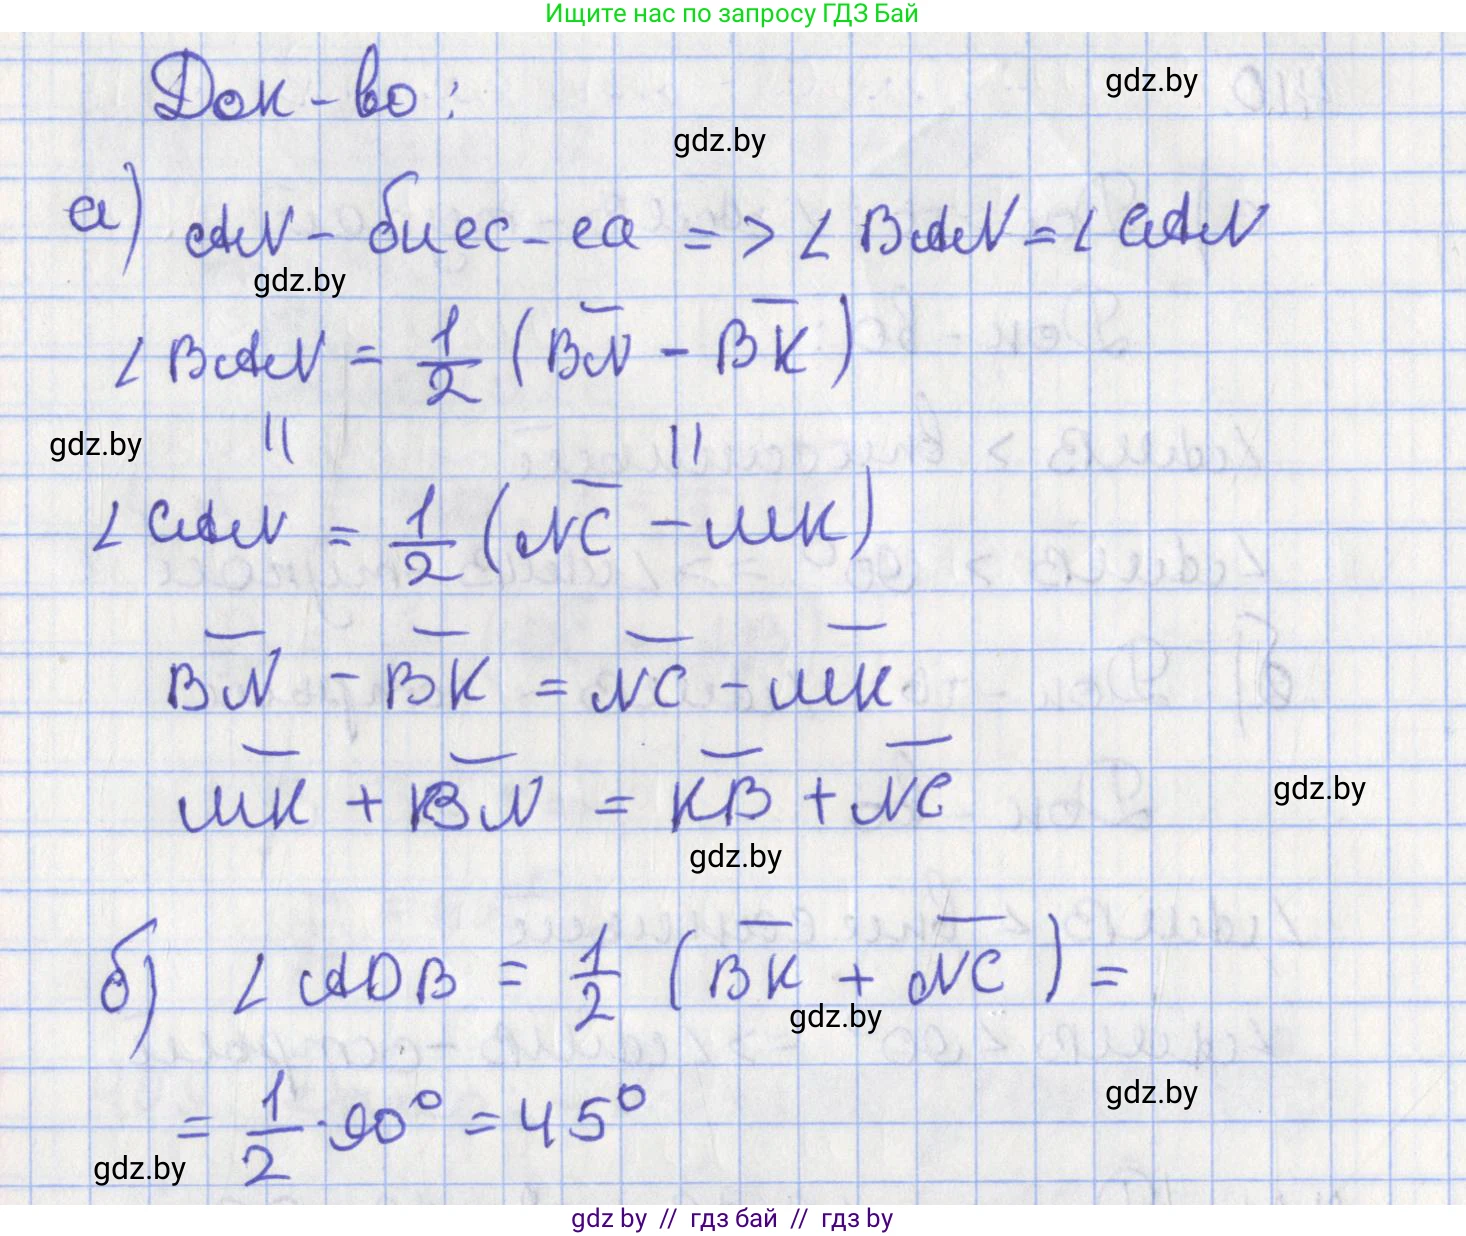 Ищите нас по запросу ГДЗ Бай
Док-во:
gdz.by
gdz.by
а) AN - бис-са => ∠BAN = ∠CAN
gdz.by
∠BAN = 1/2 (B͝N - B͝K)
gdz.by
|| ||
∠CAN = 1/2 (N͝C - MK)
B͝N - B͝K = N͝C - M͝K
M͝K + B͝N = K͝B + N͝C
gdz.by
gdz.by
б) ∠ADB = 1/2 (B͝K + N͝C) =
gdz.by
= 1/2 · 90° = 45°
gdz.by
gdz.by
gdz by // гдз бай // гдз by